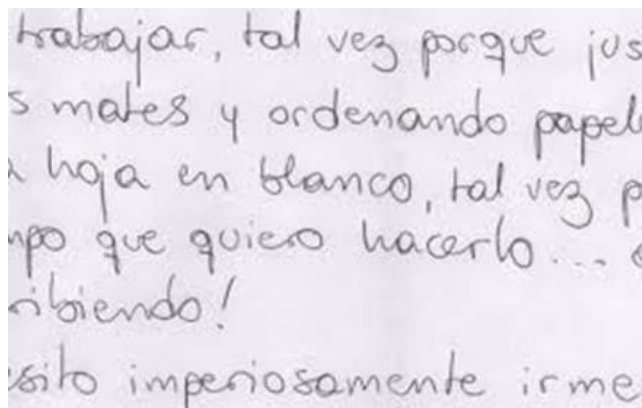 trabajar, tal vez porque jus
s mates y ordenando papel
a hoja en blanco, tal vez p
mpo que quiero hacerlo... e
ribiendo!
esito imperiosamente irme